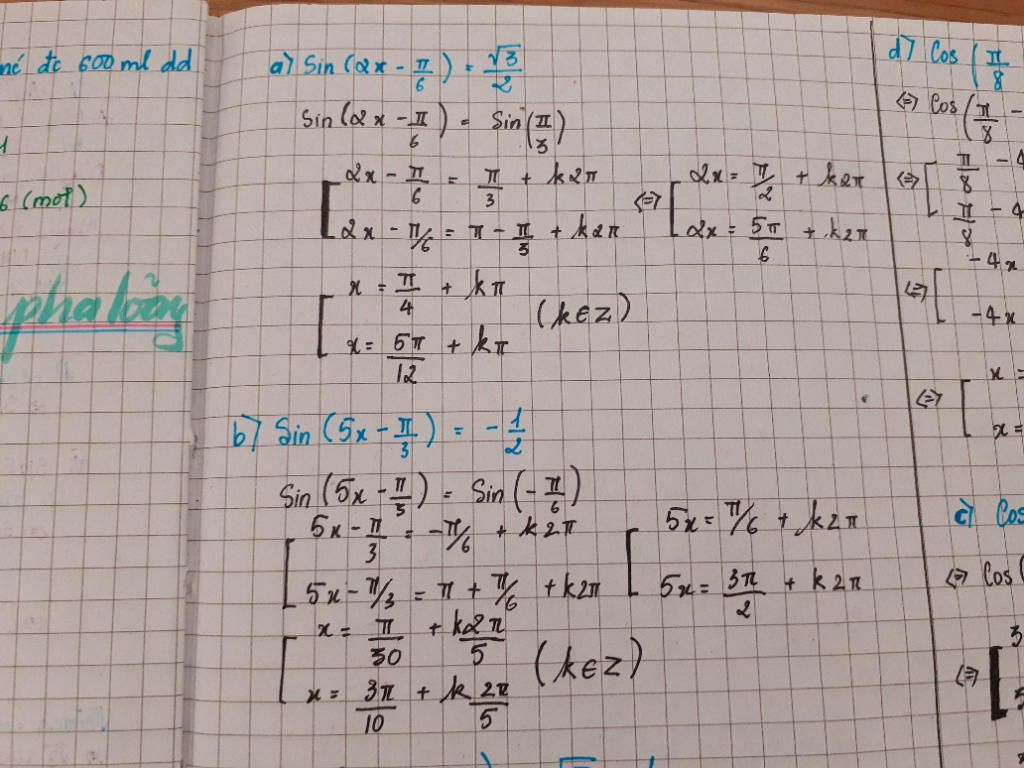 né đc 600 ml dd
1
6 (mol)
pha loãng
a) Sin (2x - π/6) = √3/2
Sin (2x - π/6) = Sin (π/3)
[ 2x - π/6 = π/3 + k2π <=> [ 2x = π/2 + k2π
2x - π/6 = π - π/3 + k2π 2x = 5π/6 + k2π
[ x = π/4 + kπ
(k∈Z)
x = 5π/12 + kπ
b) Sin (5x - π/3) = - 1/2
Sin (5x - π/3) = Sin (- π/6)
[ 5x - π/3 = - π/6 + k2π [ 5x = π/6 + k2π
5x - π/3 = π + π/6 + k2π 5x = 3π/2 + k2π
[ x = π/30 + k2π/5
(k∈Z)
x = 3π/10 + k 2π/5
d) Cos (π/8
<=> Cos (π/8 -
<=> [ π/8 - 4
π/8 - 4
<=> [ -4x
-4x
<=> [ x =
x =
c) Cos
<=> Cos (
<=> [ 3
5